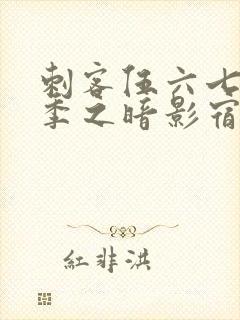 刺客伍六七
季之暗影宿
紅非洪